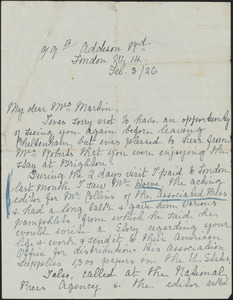 99A Addison Rd.
London W. 14.
Feb. 3/26
My dear Mrs Martin,
I was sorry not to have an opportunity
of seeing you again before leaving
Cheltenham, but was pleased to hear from
Mrs Roberts that you were enjoying the
stay at Brighton.
During the 2 days visit I paid to London
last month I saw Mr. Howe the acting
editor for Mr Collins of the Associated Press
& had a long talk & gave him various
pamphlets from which he said, he
would write a story regarding your
life & work & send it to their American
Office for distribution. This association
supplies 1300 papers in the U. States.
I also, called at the National
Press Agency & the editor asked